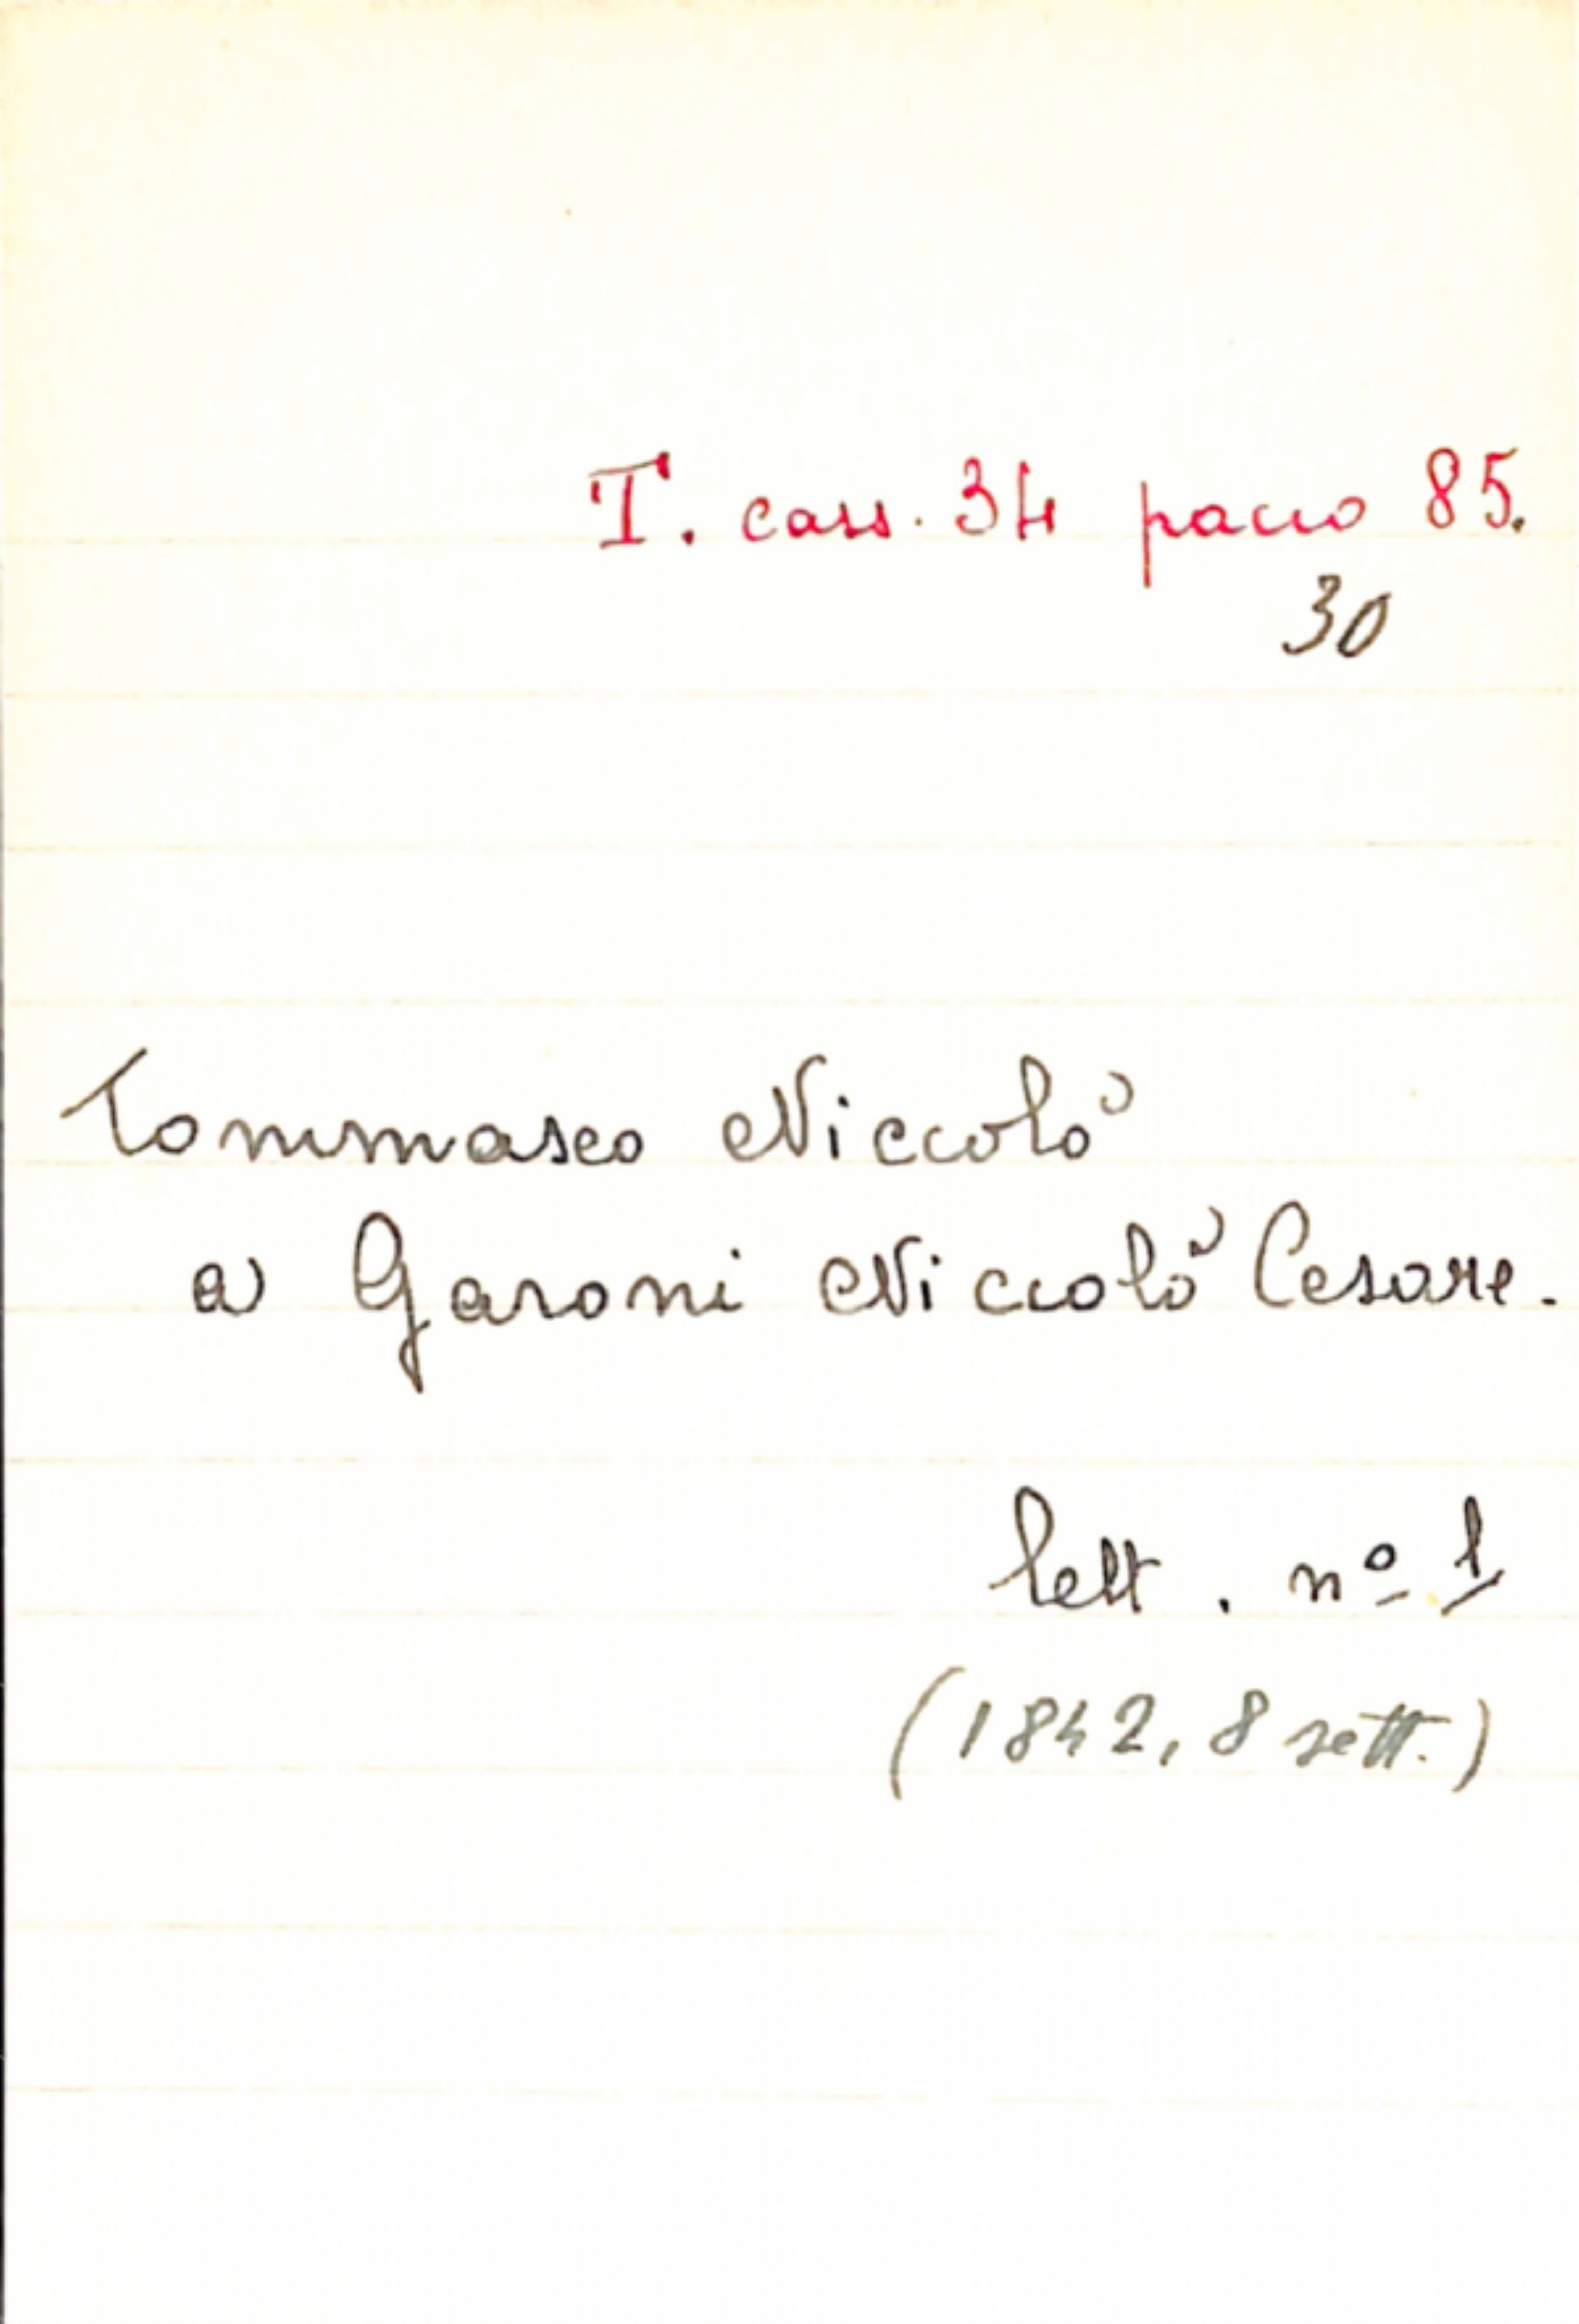 T. cass. 34 pacco 85.
30
Tommaseo Niccolò
a Garoni Niccolò Cesare.
lett. nº 1
(1842, 8 sett.)